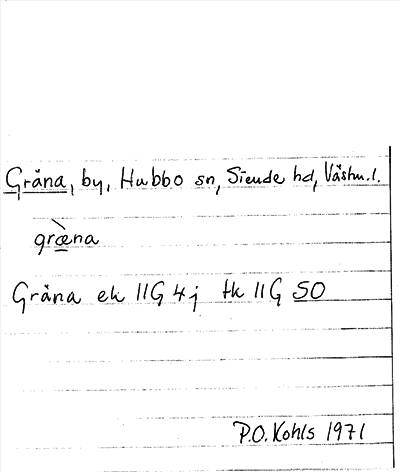 Gräna, by, Hubbo sn, Siende hd, Västm.l.
græ̀na
Gräna ek 11G 4j tk 11G SO
P.O. Kohls 1971